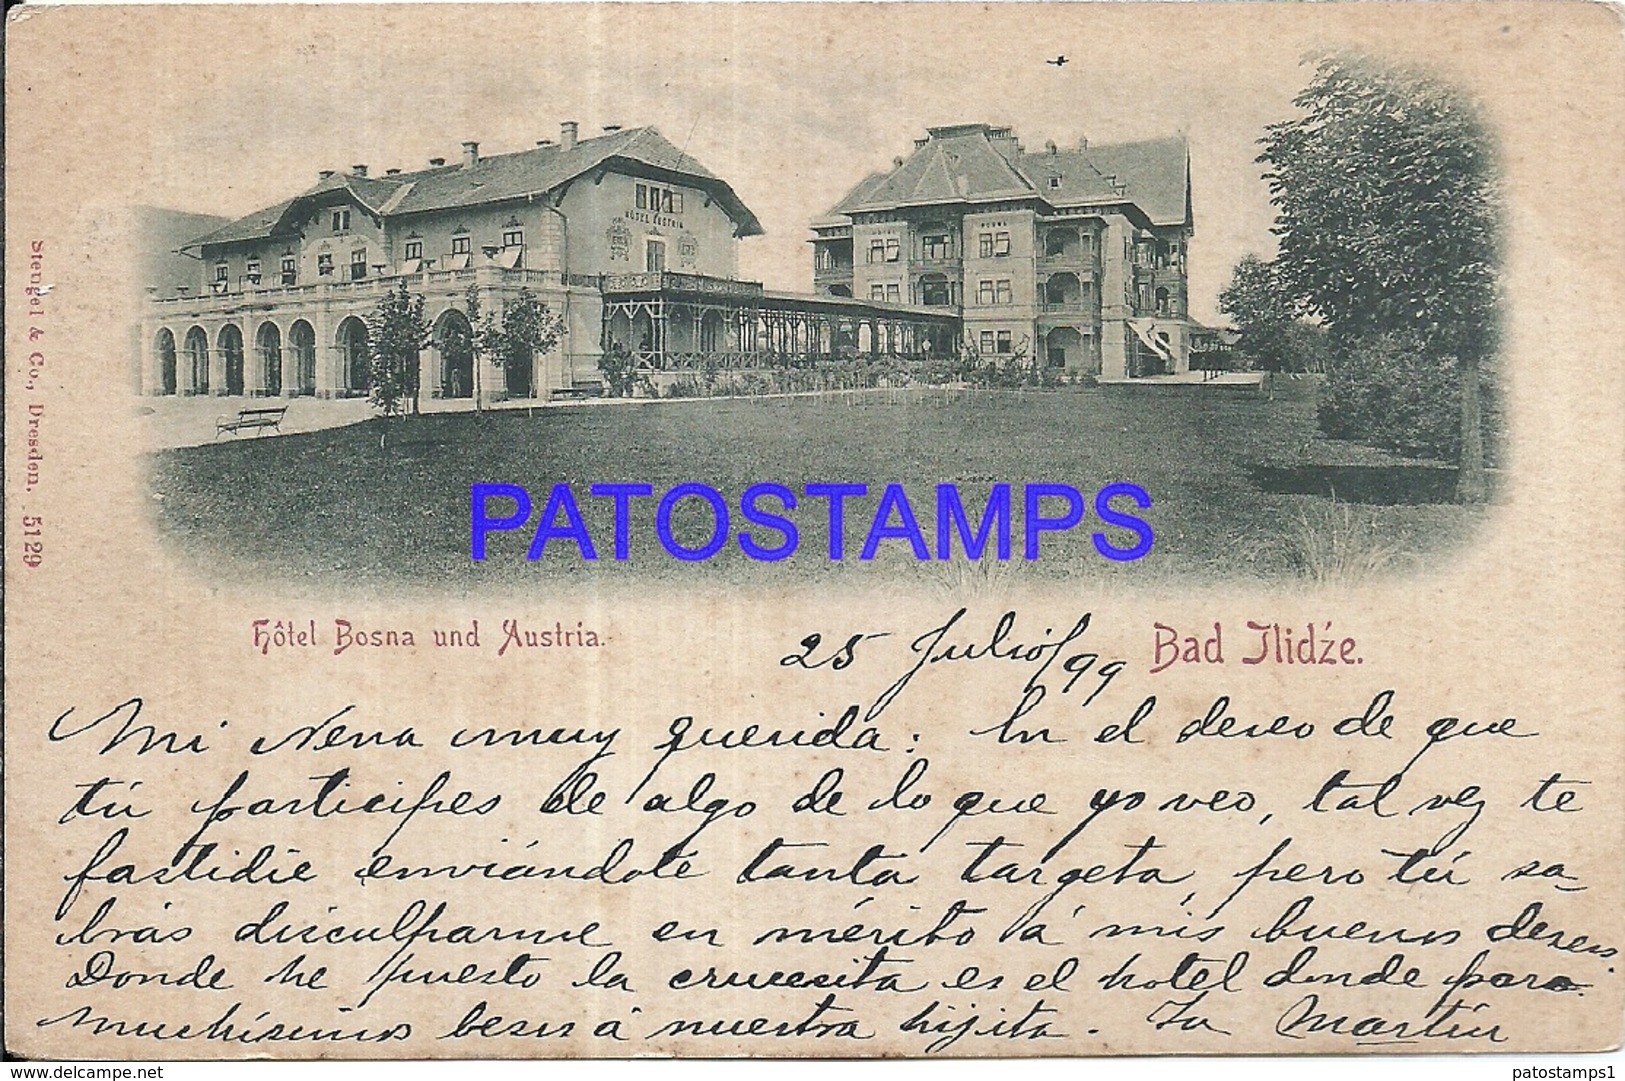 HÔTEL AUSTRIA
HOTEL BOSNA
Stengel & Co., Dresden. 5129
PATOSTAMPS
Hôtel Bosna und Austria.
25 Julio/99
Bad Ilidźe.
Mi Nena muy querida: En el deseo de que
tú participes de algo de lo que yo veo, tal vez te
fastidie enviándote tanta targeta, pero tú sa-
brás disculparme en mérito á mis buenos deseos.
Donde he puesto la crucesita es el hotel donde paro.
Muchísimos besos á nuestra hijita. Tu Martín
delcampe.net
patostamps1